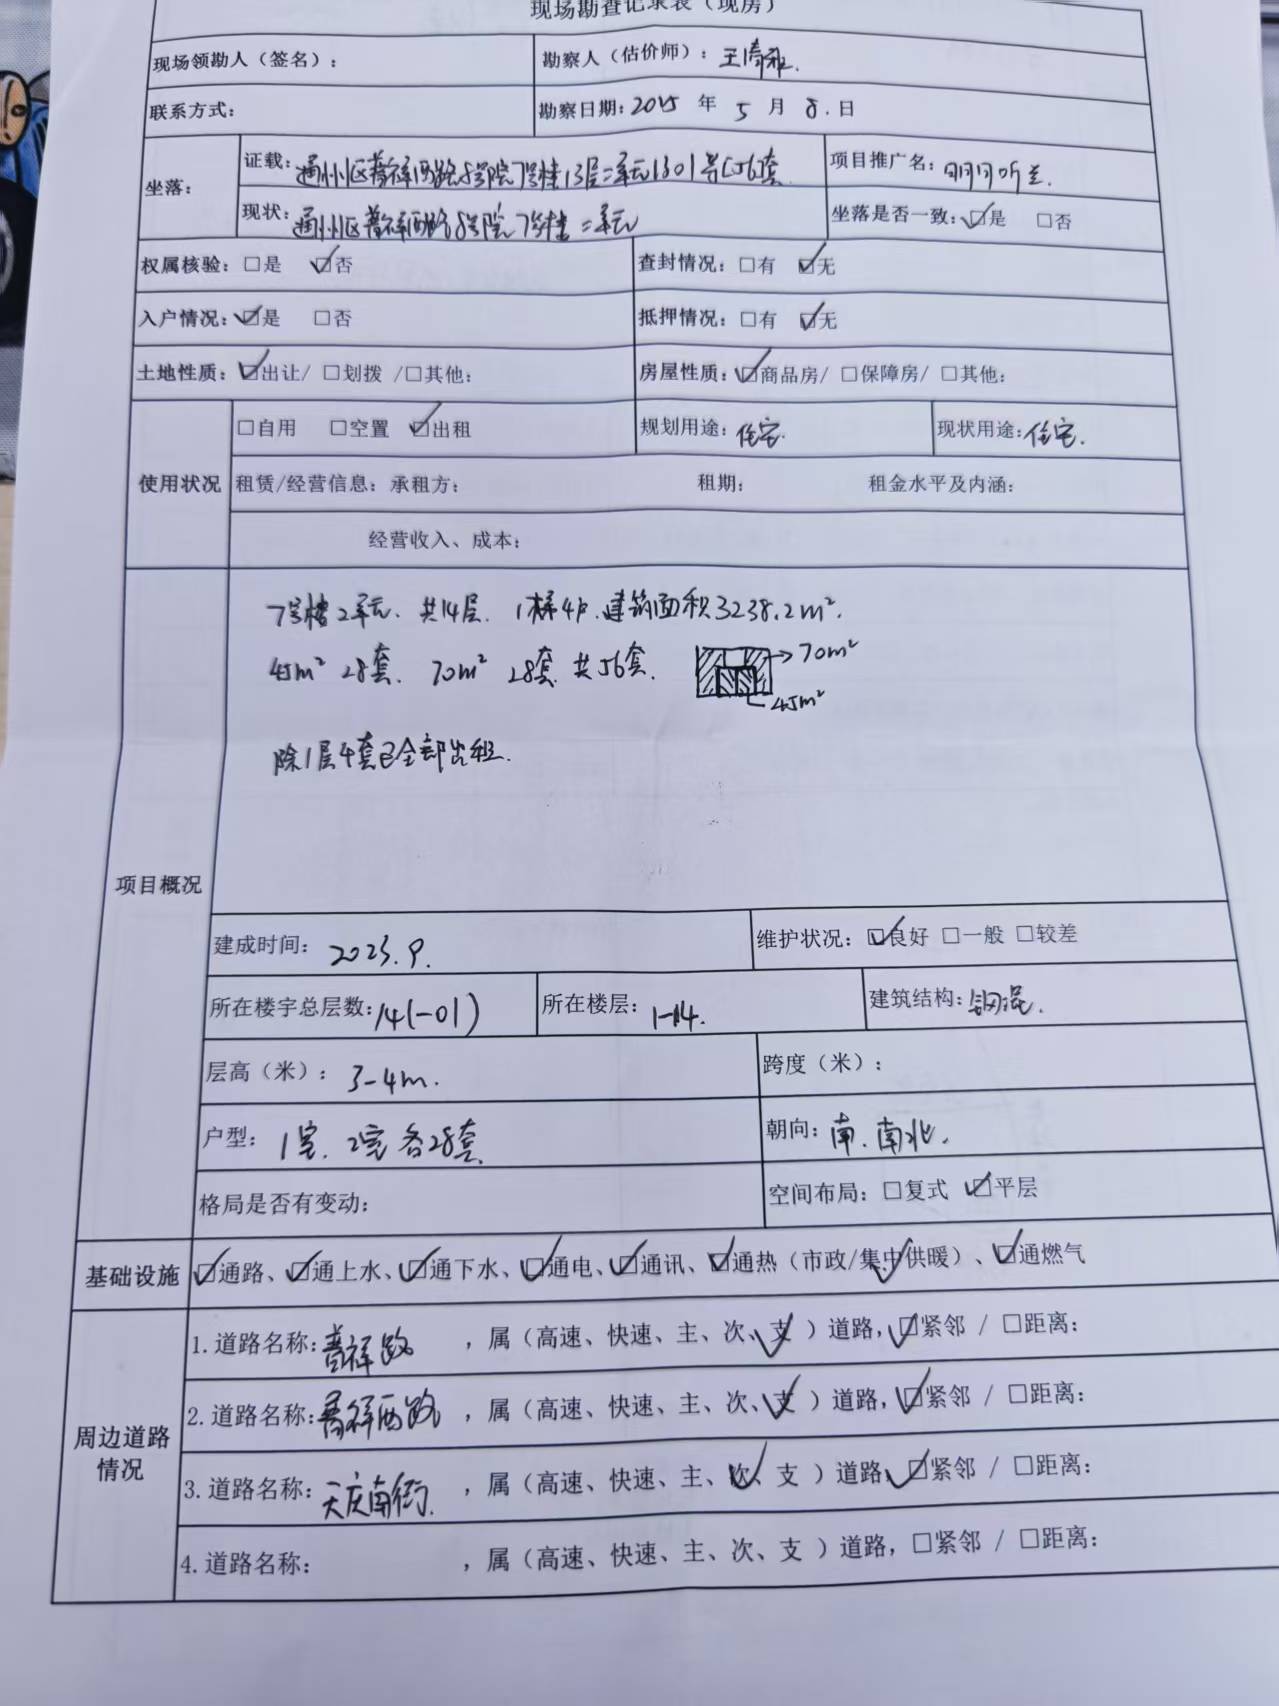 现场勘查记录表（现房）
现场领勘人（签名）： 勘察人（估价师）：王
联系方式： 勘察日期：2025 年 5 月 8 日
坐落： 证载：通州区普祥西路8号院7号楼13层二单元1301号(56套 项目推广名：
现状：通州区普祥西路8号院7号楼二单元 坐落是否一致：☑是 □否
权属核验：□是 ☑否 查封情况：□有 ☑无
入户情况：☑是 □否 抵押情况：□有 ☑无
土地性质：☑出让/ □划拨 /□其他： 房屋性质：☑商品房/ □保障房/ □其他：
使用状况 □自用 □空置 ☑出租 规划用途：住宅. 现状用途：住宅.
租赁/经营信息：承租方： 租期： 租金水平及内涵：
经营收入、成本：
项目概况
7号楼2单元. 共14层. 1梯4户.建筑面积3238.2m².
45m² 28套. 70m² 28套 共56套. 70m²
45m²
除1层4套已全部出租.
建成时间：2023.9. 维护状况：☑良好 □一般 □较差
所在楼宇总层数：14(-01) 所在楼层：1-14. 建筑结构：钢混.
层高（米）：3-4m. 跨度（米）：
户型：1室. 2室 各28套 朝向：南. 南北.
格局是否有变动： 空间布局：□复式 ☑平层
基础设施 ☑通路、☑通上水、☑通下水、☑通电、☑通讯、☑通热（市政/集中供暖）、☑通燃气
周边道路情况
1.道路名称：普祥路 ，属（高速、快速、主、次、支 ）道路，☑紧邻 / □距离：
2.道路名称：普祥西路 ，属（高速、快速、主、次、支 ）道路，☑紧邻 / □距离：
3.道路名称：天庆南街. ，属（高速、快速、主、次、支 ）道路，☑紧邻 / □距离：
4.道路名称： ，属（高速、快速、主、次、支 ）道路，□紧邻 / □距离：